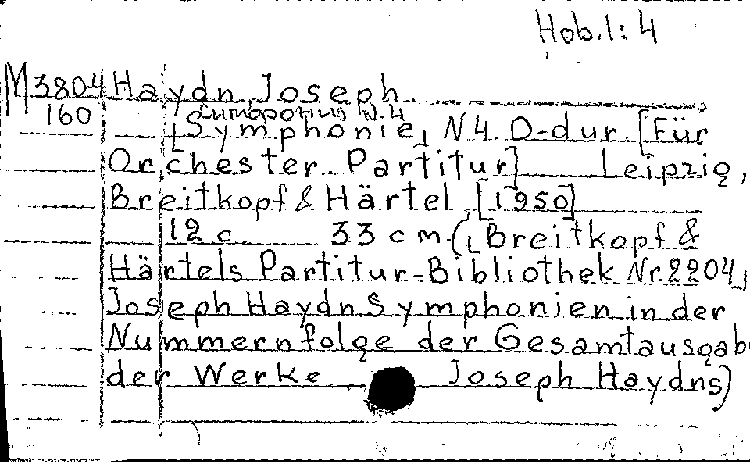 Hob.I: 4
M3804 Haydn, Joseph.
160 Симфония N.4
[Symphonie, N4 D-dur. [Für
Orchester. Partitur] Leipzig,
Breitkopf & Härtel, [1950]
12 c. 33 cm. (Breitkopf &
Härtels Partitur-Bibliothek Nr.2204,
Joseph Haydn Symphonien in der
Nummernfolge der Gesamtausgabe
der Werke Joseph Haydns)